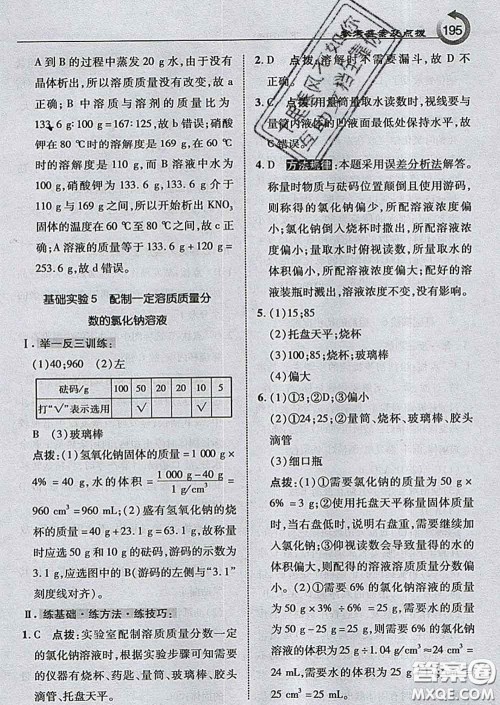 参考答案及点拨 195
A 到 B 的过程中蒸发 20 g 水,由于没有
晶体析出,所以溶质质量没有改变,故 a
正确;B 中溶质与溶剂的质量比为
133.6 g∶100 g=1.336∶1,故 b 错误;硝酸
钾在 85 ℃时的溶解度是 169 g,在 60 ℃
时的溶解度是 110 g,而 B 溶液中水为
100 g,硝酸钾为 133.6 g,所以开始析出 KNO₃
固体的温度在 60 ℃至 80 ℃之间,故 c 正
确;A 溶液的质量等于 133.6 g+120 g=
253.6 g,故 d 错误。
基础实验 5 配制一定溶质质量分
数的氯化钠溶液
Ⅰ.举一反三训练:
(1)40;960 (2)左
砝码/g 100 50 20 20 10 5
打“√”表示选用 √ √
B (3)玻璃棒
点拨:(1)氢氧化钠固体的质量=1 000 g
×4%=40 g,水的体积=(1 000 g-40 g)/(1 g/cm³)=
960 cm³=960 mL;(2)盛有氢氧化钠的烧
杯的质量=40 g+23.1 g=63.1 g,故称量
时应选 50 g 和 10 g 的砝码,游码的示数为
3.1 g,应选图中的 B(游码的左侧与“3.1”
刻度线对齐)。
Ⅱ.练基础·练方法·练技巧:
1.C 点拨:实验室配制溶质质量分数一定
的氯化钠溶液时,根据实验步骤可知需要
的仪器有烧杯、药匙、量筒、玻璃棒、胶头
滴管、托盘天平。
2.D 点拨:溶解时不需要漏斗,故 D 不
正确。
3.C 点拨:用量筒量取水读数时,视线要与
量筒内液体的凹液面最低处保持水平,故
C 错误。
4.D 方法规律:本题采用误差分析法解答。
称量时物质与砝码位置颠倒且使用游码,
则称得的氯化钠偏少,所配溶液浓度
偏小;氯化钠倒入烧杯时撒出,所配溶液浓
度偏小;量取水时俯视读数,所量取水的
体积偏小,所配溶液浓度偏大;配好的溶
液装瓶时溅出,对溶液浓度没有影响。
5.(1)15;85
(2)托盘天平;烧杯
(3)100;85;烧杯;玻璃棒
(4)偏大
6.(1)①3;②右盘;③偏小
(2)①24;25;②量筒、烧杯、玻璃棒、胶头
滴管
(3)细口瓶
点拨:(1)①需要氯化钠的质量为 50 g
×6%=3 g。②使用托盘天平称量物质
时,当右盘低,即药品偏少时,需要继续加
入氯化钠;③仰视读数会导致量得的水的
体积偏大,则配得的溶液溶质质量分数偏
小。(2)①需要 6%的氯化钠溶液的质量为
50 g×3%÷6%=25 g,需要水的质量为
50 g-25 g=25 g,需要水的体积为 25 g÷
1 g/cm³=25 cm³=25 mL。
答案圈
MXQE.COM